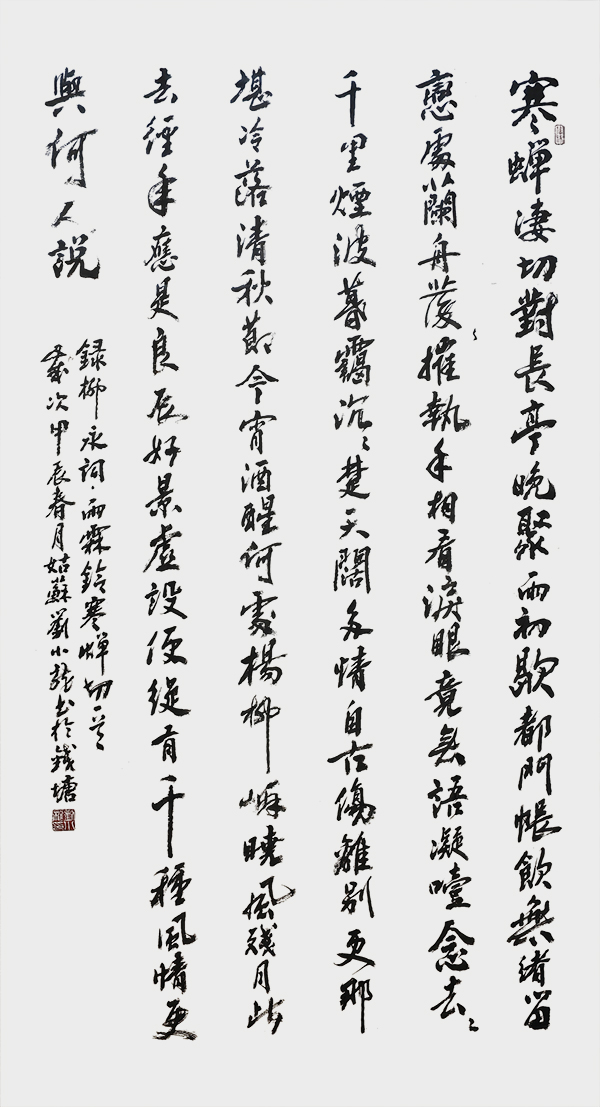 寒蟬淒切對長亭晚聚雨初歇都門帳飲無緒留
戀處蘭舟發摧執手相看淚眼竟無語凝噎念去〻
千里煙波暮靄沉〻楚天闊多情自古傷離別更那
堪冷落清秋節今宵酒醒何處楊柳岸曉風殘月此
去經年應是良辰好景虛設便縱有千種風情更
與何人說
錄柳永詞·雨霖鈴寒蟬切一首
歲次甲辰春月姑蘇劉小龍書於錢塘